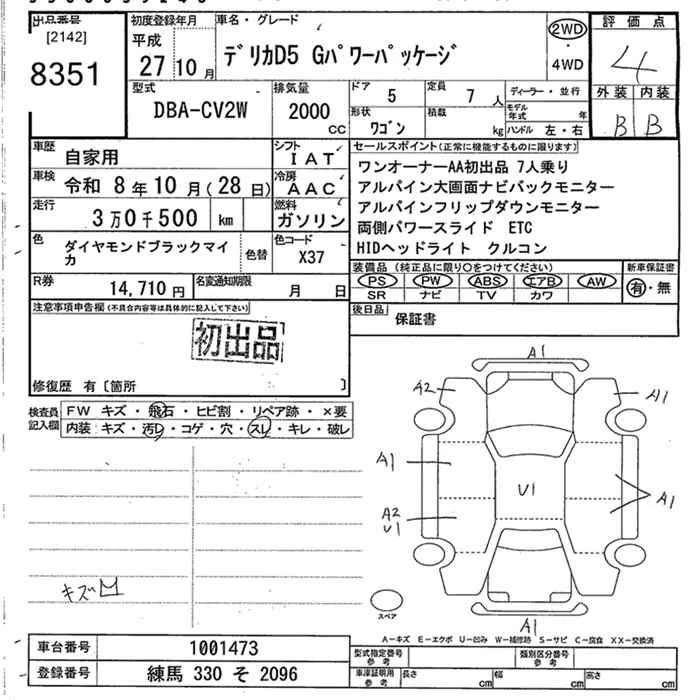 出品番号
[2142]
8351
初度登録年月
平成
27 10 月
車名・グレード
デリカD5 Gパワーパッケージ
2WD
・
4WD
評価点
4
外装 内装
B B
型式
DBA-CV2W
排気量
2000
cc
ドア
5
定員
7 人
形状
ワゴン
積載
kg
ディーラー・並行
モデル年式 年
ハンドル 左・右
車歴
自家用
シフト
IAT
車検
令和 8年 10月 (28日)
冷房
AAC
走行
3万0千500 km
燃料
ガソリン
色
ダイヤモンドブラックマイカ
色替
色コード
X37
R券
14,710円
名変通知期限
月 日
セールスポイント(正常に機能するものに限ります)
ワンオーナーAA初出品 7人乗り
アルパイン大画面ナビバックモニター
アルパインフリップダウンモニター
両側パワースライド ETC
HIDヘッドライト クルコン
装備品 (純正品に限り○をつけてください)
PS PW ABS エアB AW
SR ナビ TV カワ
新車保証書
有・無
後日品
保証書
注意事項申告欄(不具合内容等は具体的に記入して下さい)
初出品
修復歴 有〔箇所 〕
検査員記入欄
FW キズ・飛石・ヒビ割・リペア跡・×要
内装 キズ・汚レ・コゲ・穴・スレ・キレ・破レ
A1
A2
A1
A1
U1
A1
A2
U1
A1
キズ
スペア
A-キズ E-エクボ U-凹み W-補修跡 S-サビ C-腐食 XX-交換済
車台番号
1001473
登録番号
練馬 330 そ 2096
型式指定番号
参考
類別区分番号
参考
車庫証明用
参考
長さ cm
幅 cm
高さ cm